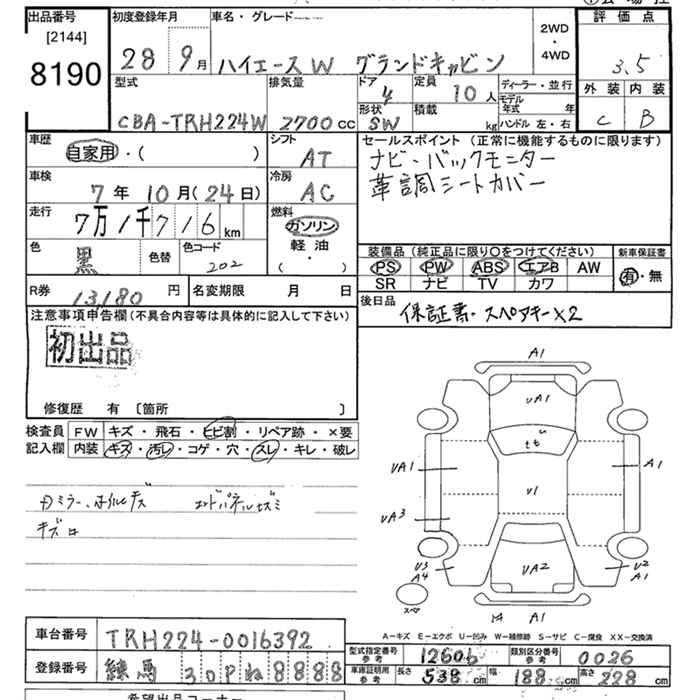 出品番号 初度登録年月 車名・グレード 2WD・4WD 評価点
[2144]
8190 28 9月 ハイエースW グランドキャビン 3.5
型式 排気量 ドア 4 定員 10人 ディーラー・並行 外装 内装
モデル年式 年
CBA-TRH224W 2700cc 形状 SW 積載 kg ハンドル 左・右 C B
車歴 自家用・( ) シフト AT セールスポイント (正常に機能するものに限ります)
ナビ・バックモニター
車検 7年10月(24日) 冷房 AC 革調シートカバー
走行 7万1千716km 燃料 ガソリン
軽油
( ・ )
色 黒 色替 色コード 202
装備品 (純正品に限り○をつけてください) 新車保証書
PS PW ABS エアB AW 有・無
SR ナビ TV カワ
R券 13,180円 名変期限 月 日 後日品 保証書・スペアキーX2
注意事項申告欄(不具合内容等は具体的に記入して下さい)
初出品
修復歴 有 〔箇所 〕
検査員 FW キズ・飛石・ヒビ割・リペア跡・×要
記入欄 内装 キズ・汚レ・コゲ・穴・スレ・キレ・破レ
キズ
A1
UA1
UA1 A1
U1
UA3
U3 A4 UA2 U2 A1
スペア
A1
A−キズ E−エクボ U−凹み W−補修跡 S−サビ C−腐食 XX−交換済
車台番号 TRH224-0016392
登録番号 練馬 30P ね 8888
型式指定番号 参考 12606 類別区分番号 参考 0026
車庫証明用 参考 長さ 538cm 幅 188cm 高さ 228cm
希望出品コーナー